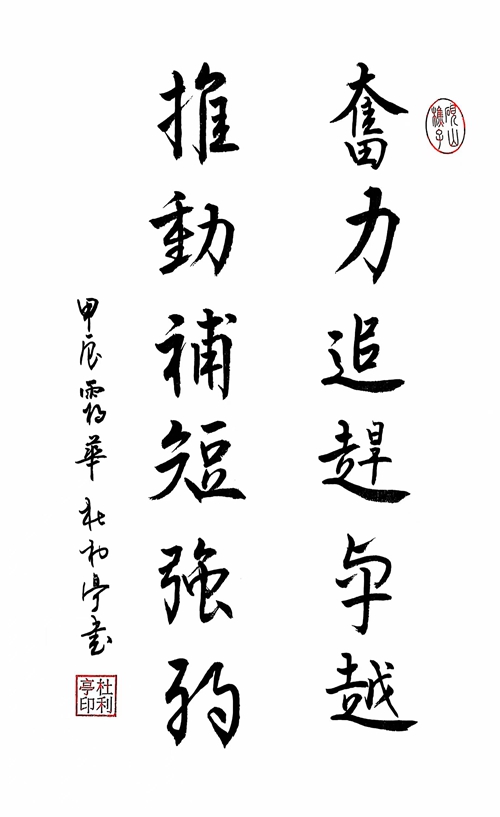 奮力追趕卓越
推動補短強弱
甲辰華 杜利亭書
杜利
亭印